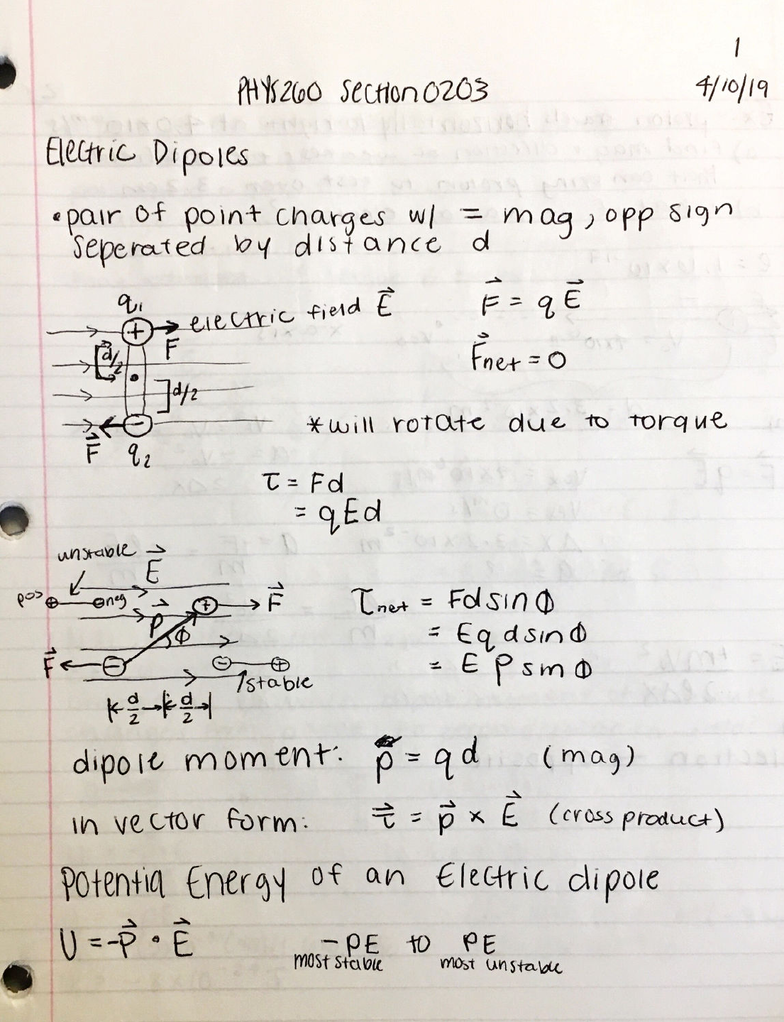 1
PHYS260 Section 0203 4/10/19
Electric Dipoles
• pair of point charges w/ = mag, opp sign
seperated by distance d
q₁
+ → electric field E⃗ F⃗ = qE⃗
F
F⃗net = 0
d/2
d/2
− *will rotate due to torque
F⃗ q₂
τ = Fd
= qEd
unstable E⃗
pos + − neg + F⃗
P⃗ ϕ
F⃗ − − +
stable
d/2 d/2
τnet = Fd sin ϕ
= Eq d sin ϕ
= E P sin ϕ
dipole moment: p = qd (mag)
in vector form: τ⃗ = p⃗ × E⃗ (cross product)
Potentia Energy of an Electric dipole
U = -P⃗ • E⃗ -PE to PE
most stable most unstable